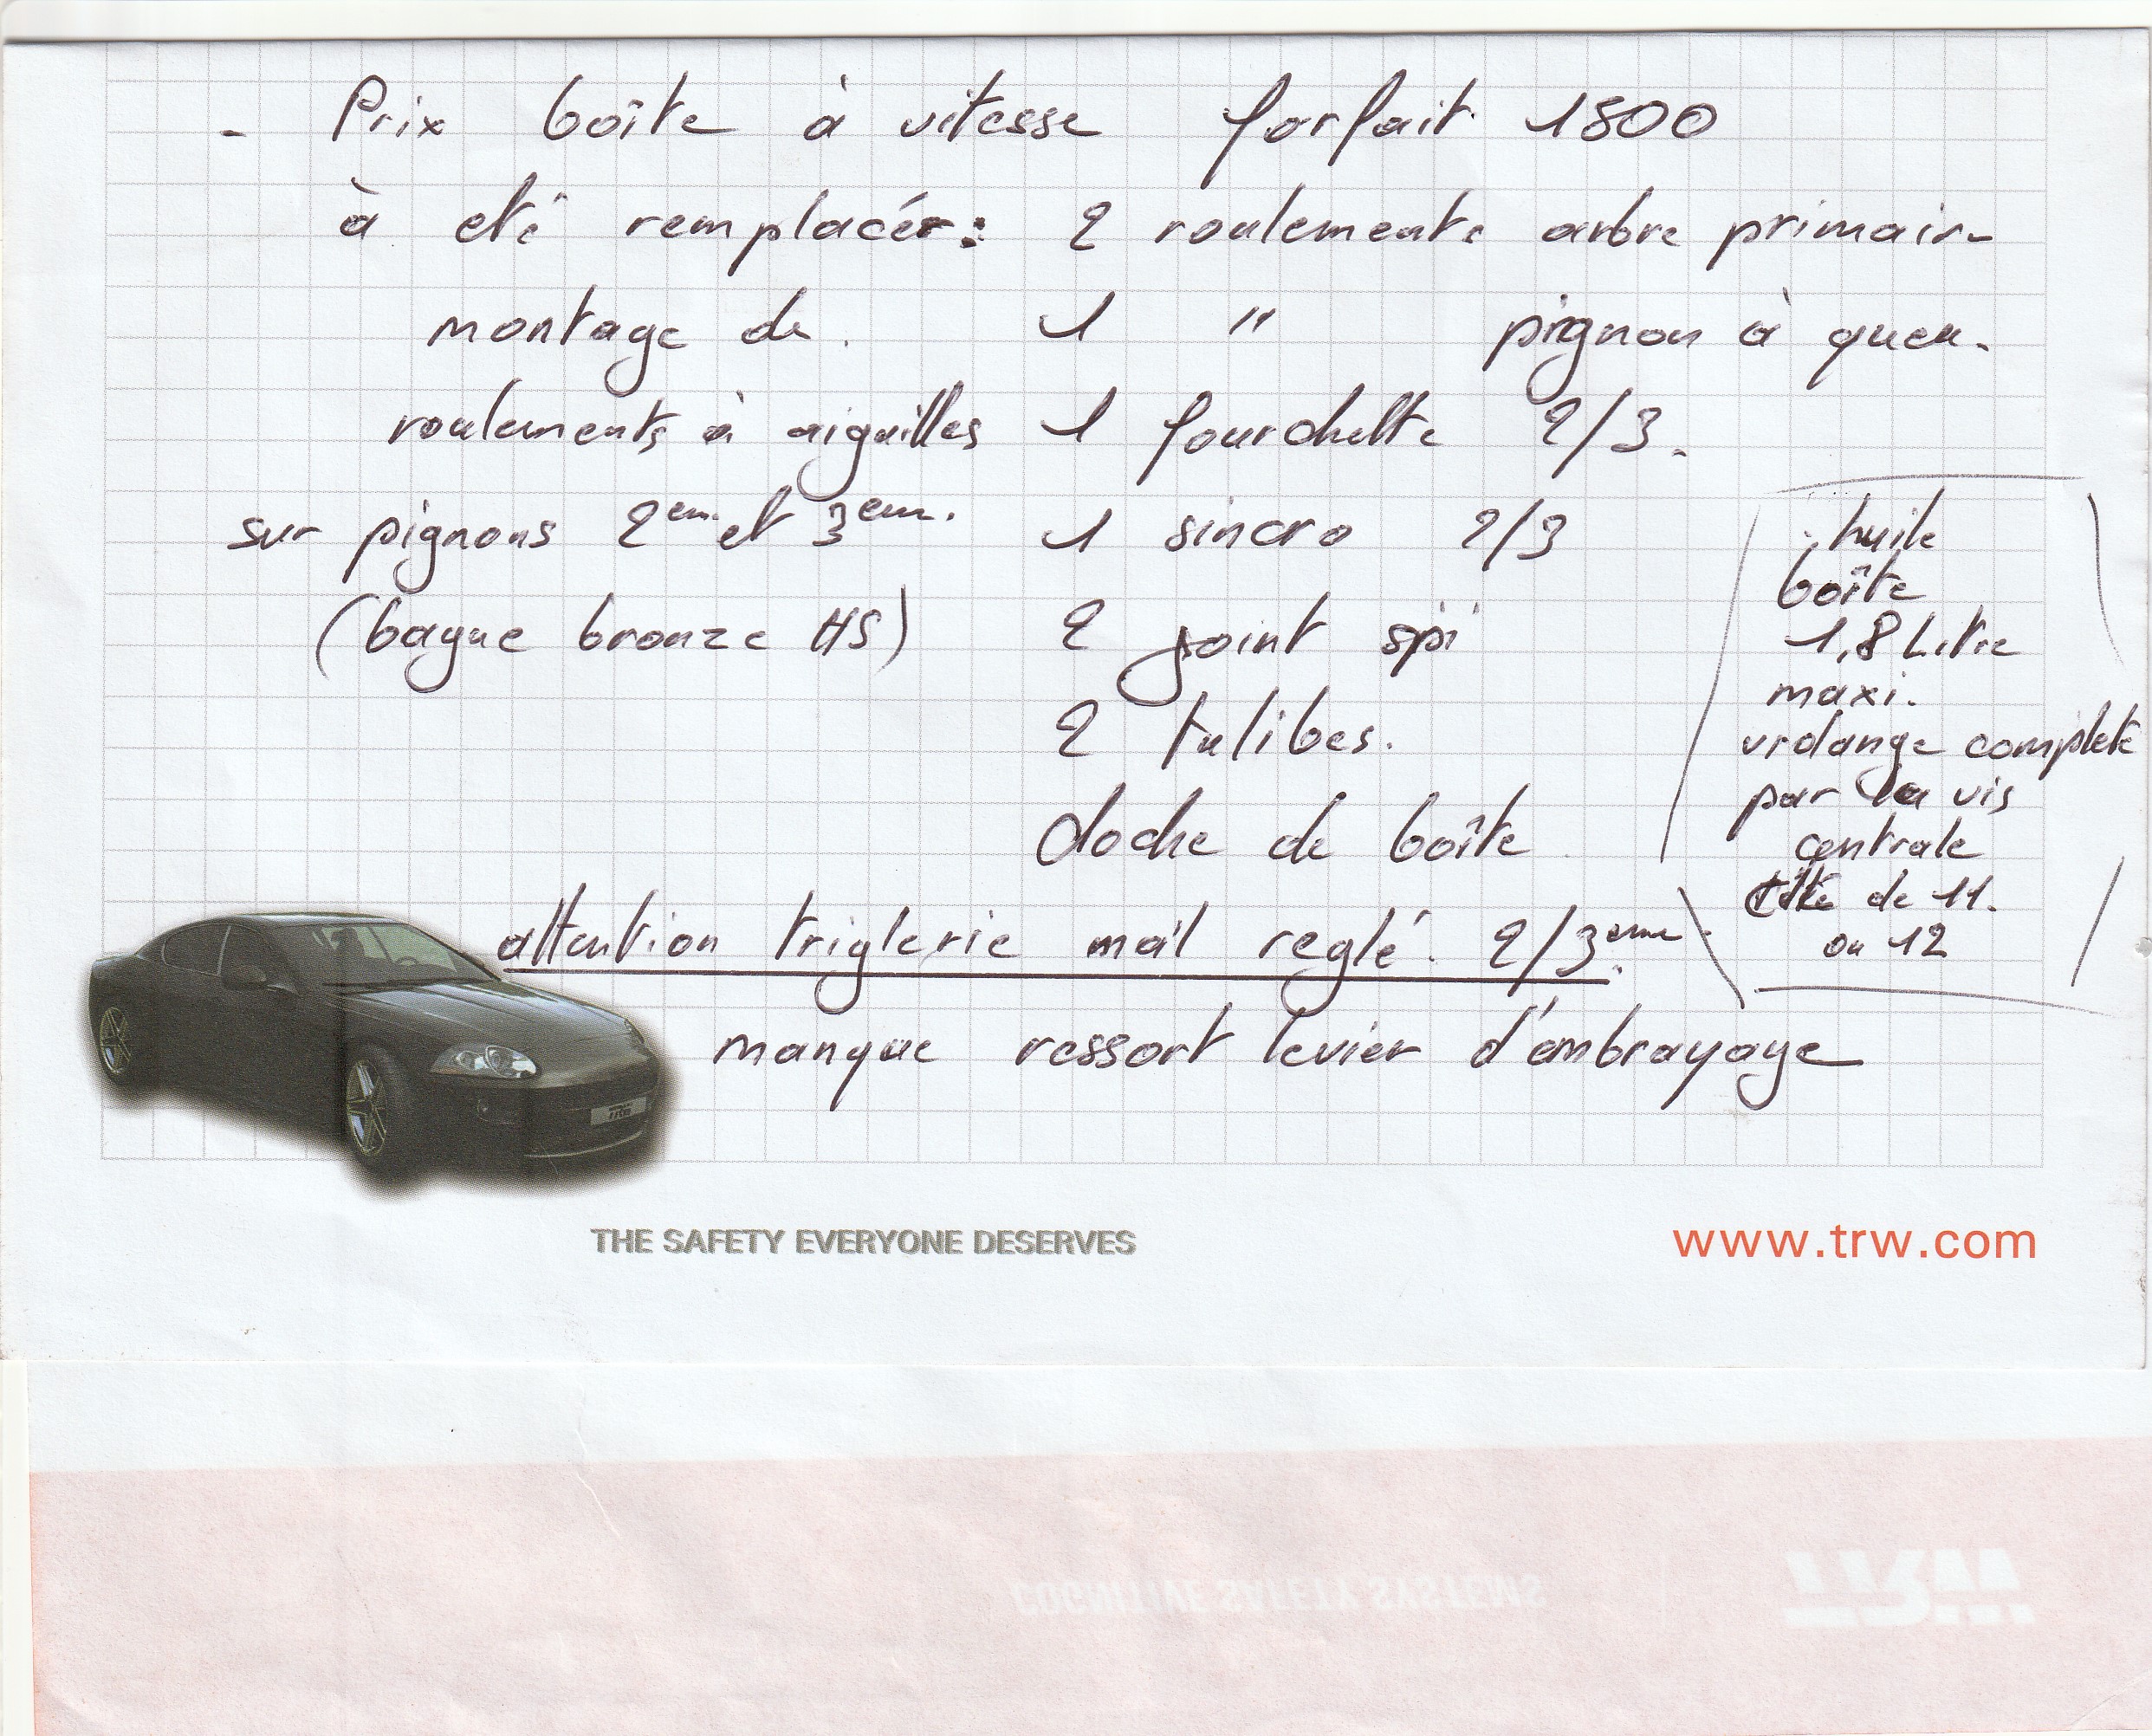 - Prix boîte à vitesse forfait 1800
à eté remplacér: 2 roulements arbre primair-
montage de. 1 " pignon à queu.
roulements à aiguilles 1 fourchette 2/3.
sur pignons 2em. et 3em. 1 sincro 2/3
(bague bronze HS) 2 joint spi
2 tulibes.
cloche de boîte.
huile
boîte
1,8 Litre
maxi.
vidange complete
par la vis
centrale
de 11.
ou 12
attention triglerie mal reglé. 2/3eme.
manque ressort levier d'embrayage
TRW
THE SAFETY EVERYONE DESERVES
www.trw.com
COGNITIVE SAFETY SYSTEMS
TRW